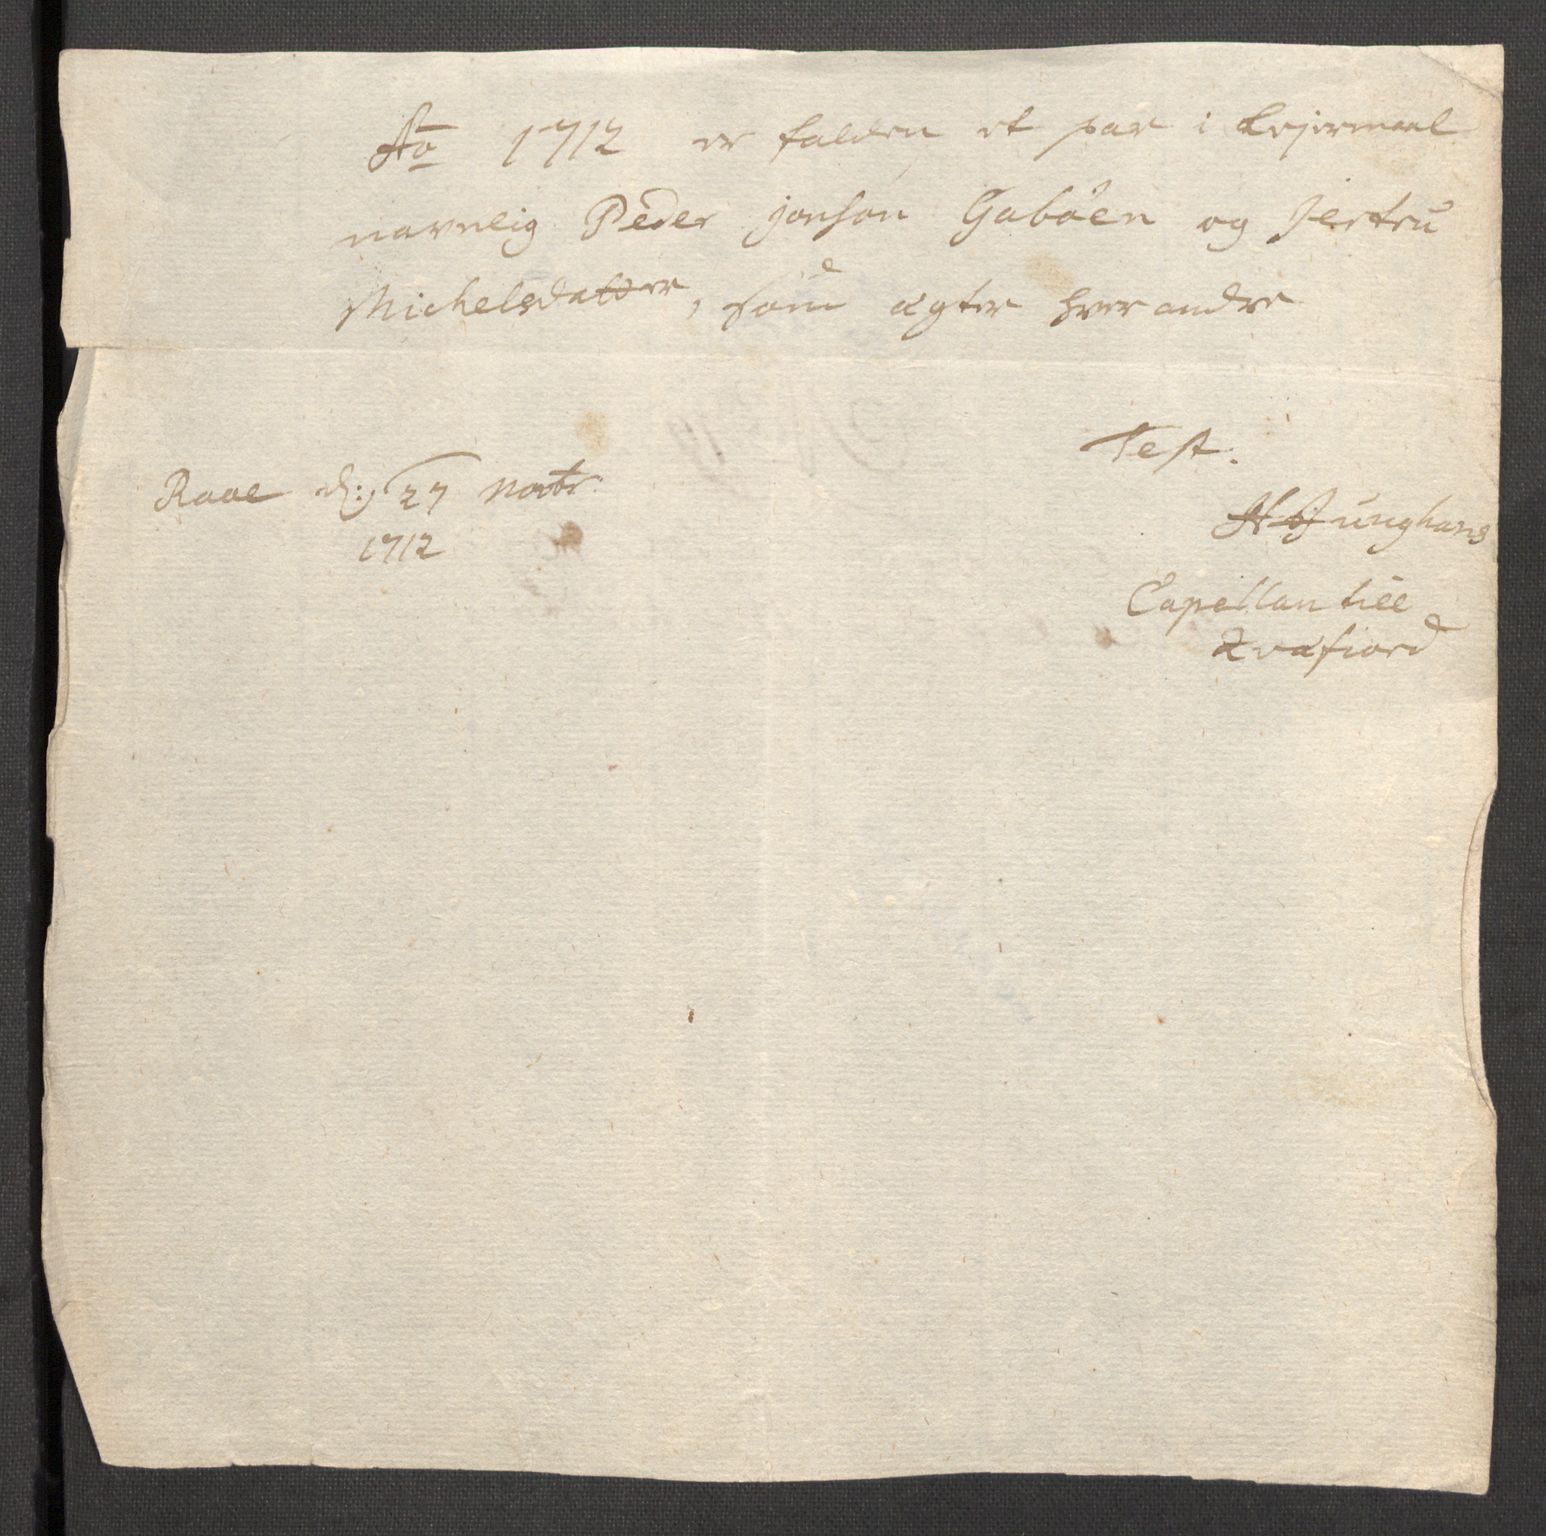 Ao 1712 er falden et par i Lejermaal
navnlig Peder jonson Gaböen og Jertru
Michelsdatter, som ægter hverandre
Test.
Raae d: 27 Novbr:
1712
HJunghans
Capellan till
Qvæfiord